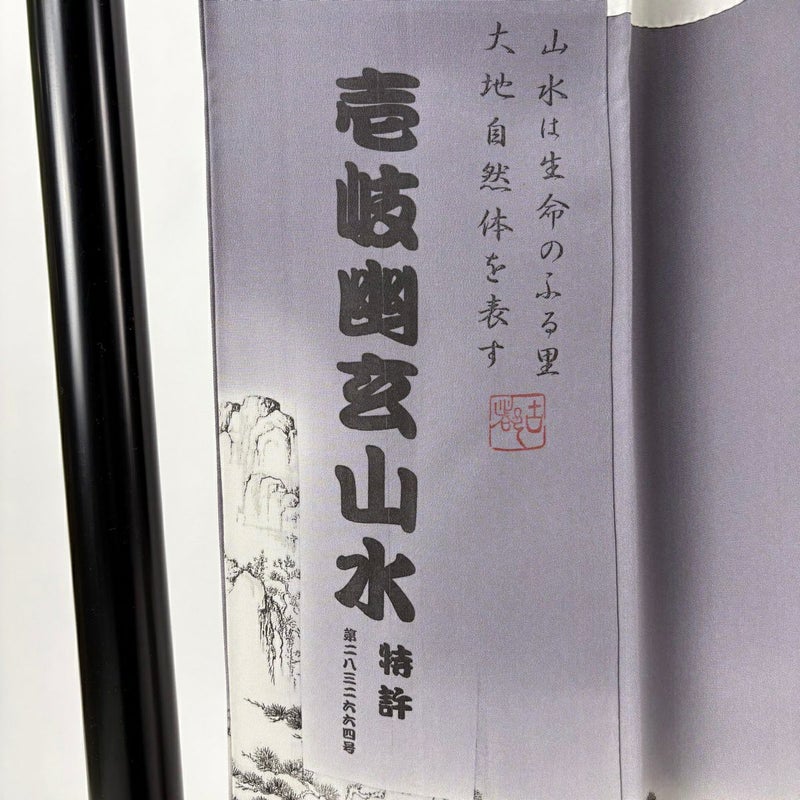 山水は生命のふる里
大地自然体を表す
古都
壱岐幽玄山水
特許
第二八三二六六四号